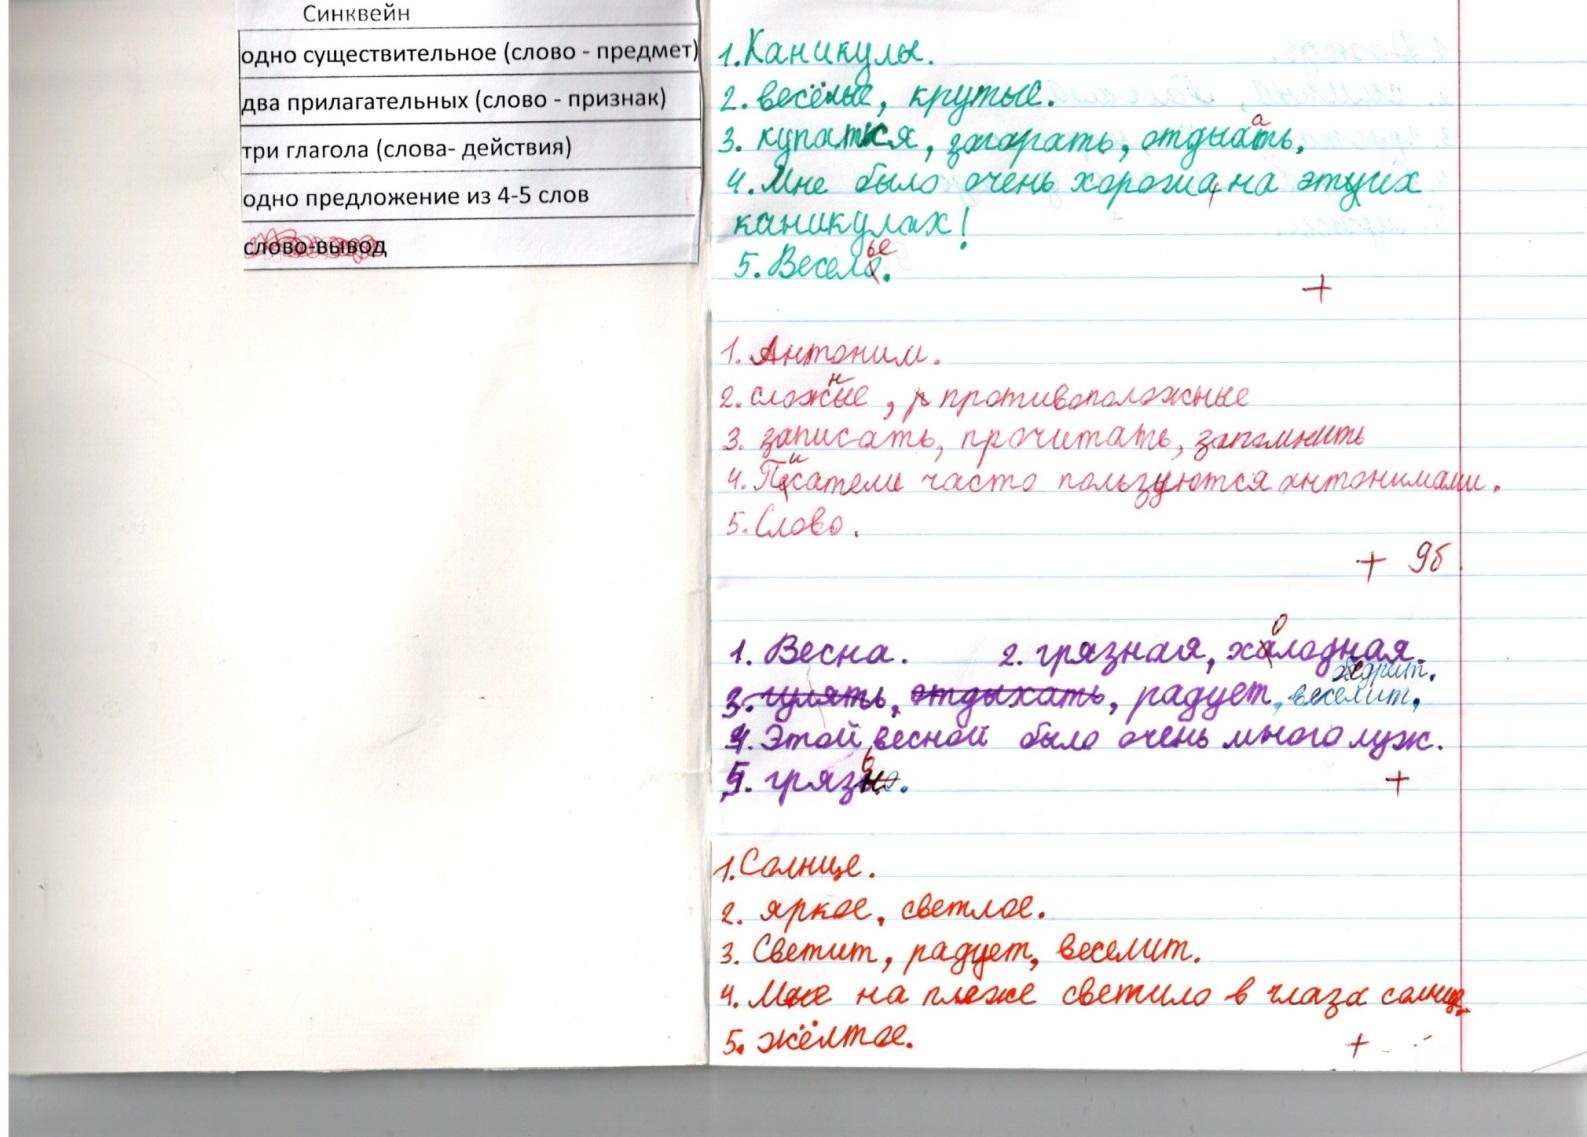 Синквейн
одно существительное (слово - предмет)
два прилагательных (слово - признак)
три глагола (слова- действия)
одно предложение из 4-5 слов
слово-вывод
1. Каникулы.
2. весёлые, крутые.
3. купаться, загорать,
4. Мне было очень хороша на этих
каникулах!
5. Веселье.
+
1. Антоним.
2. сложные, противоположные
3. записать, прочитать, запомнить
4. Писатели часто пользуются антонимами.
5. Слово.
+ 9б
1. Весна. 2. грязная, холодная.
3. гулять, отдыхать, радует, веселит,
4. Этой весной было очень много луж.
5. грязь.
+
1. Солнце.
2. яркое, светлое.
3. Светит, радует, веселит.
4. Мне на пляже светило в глаза солнце.
5. жёлтое.
+